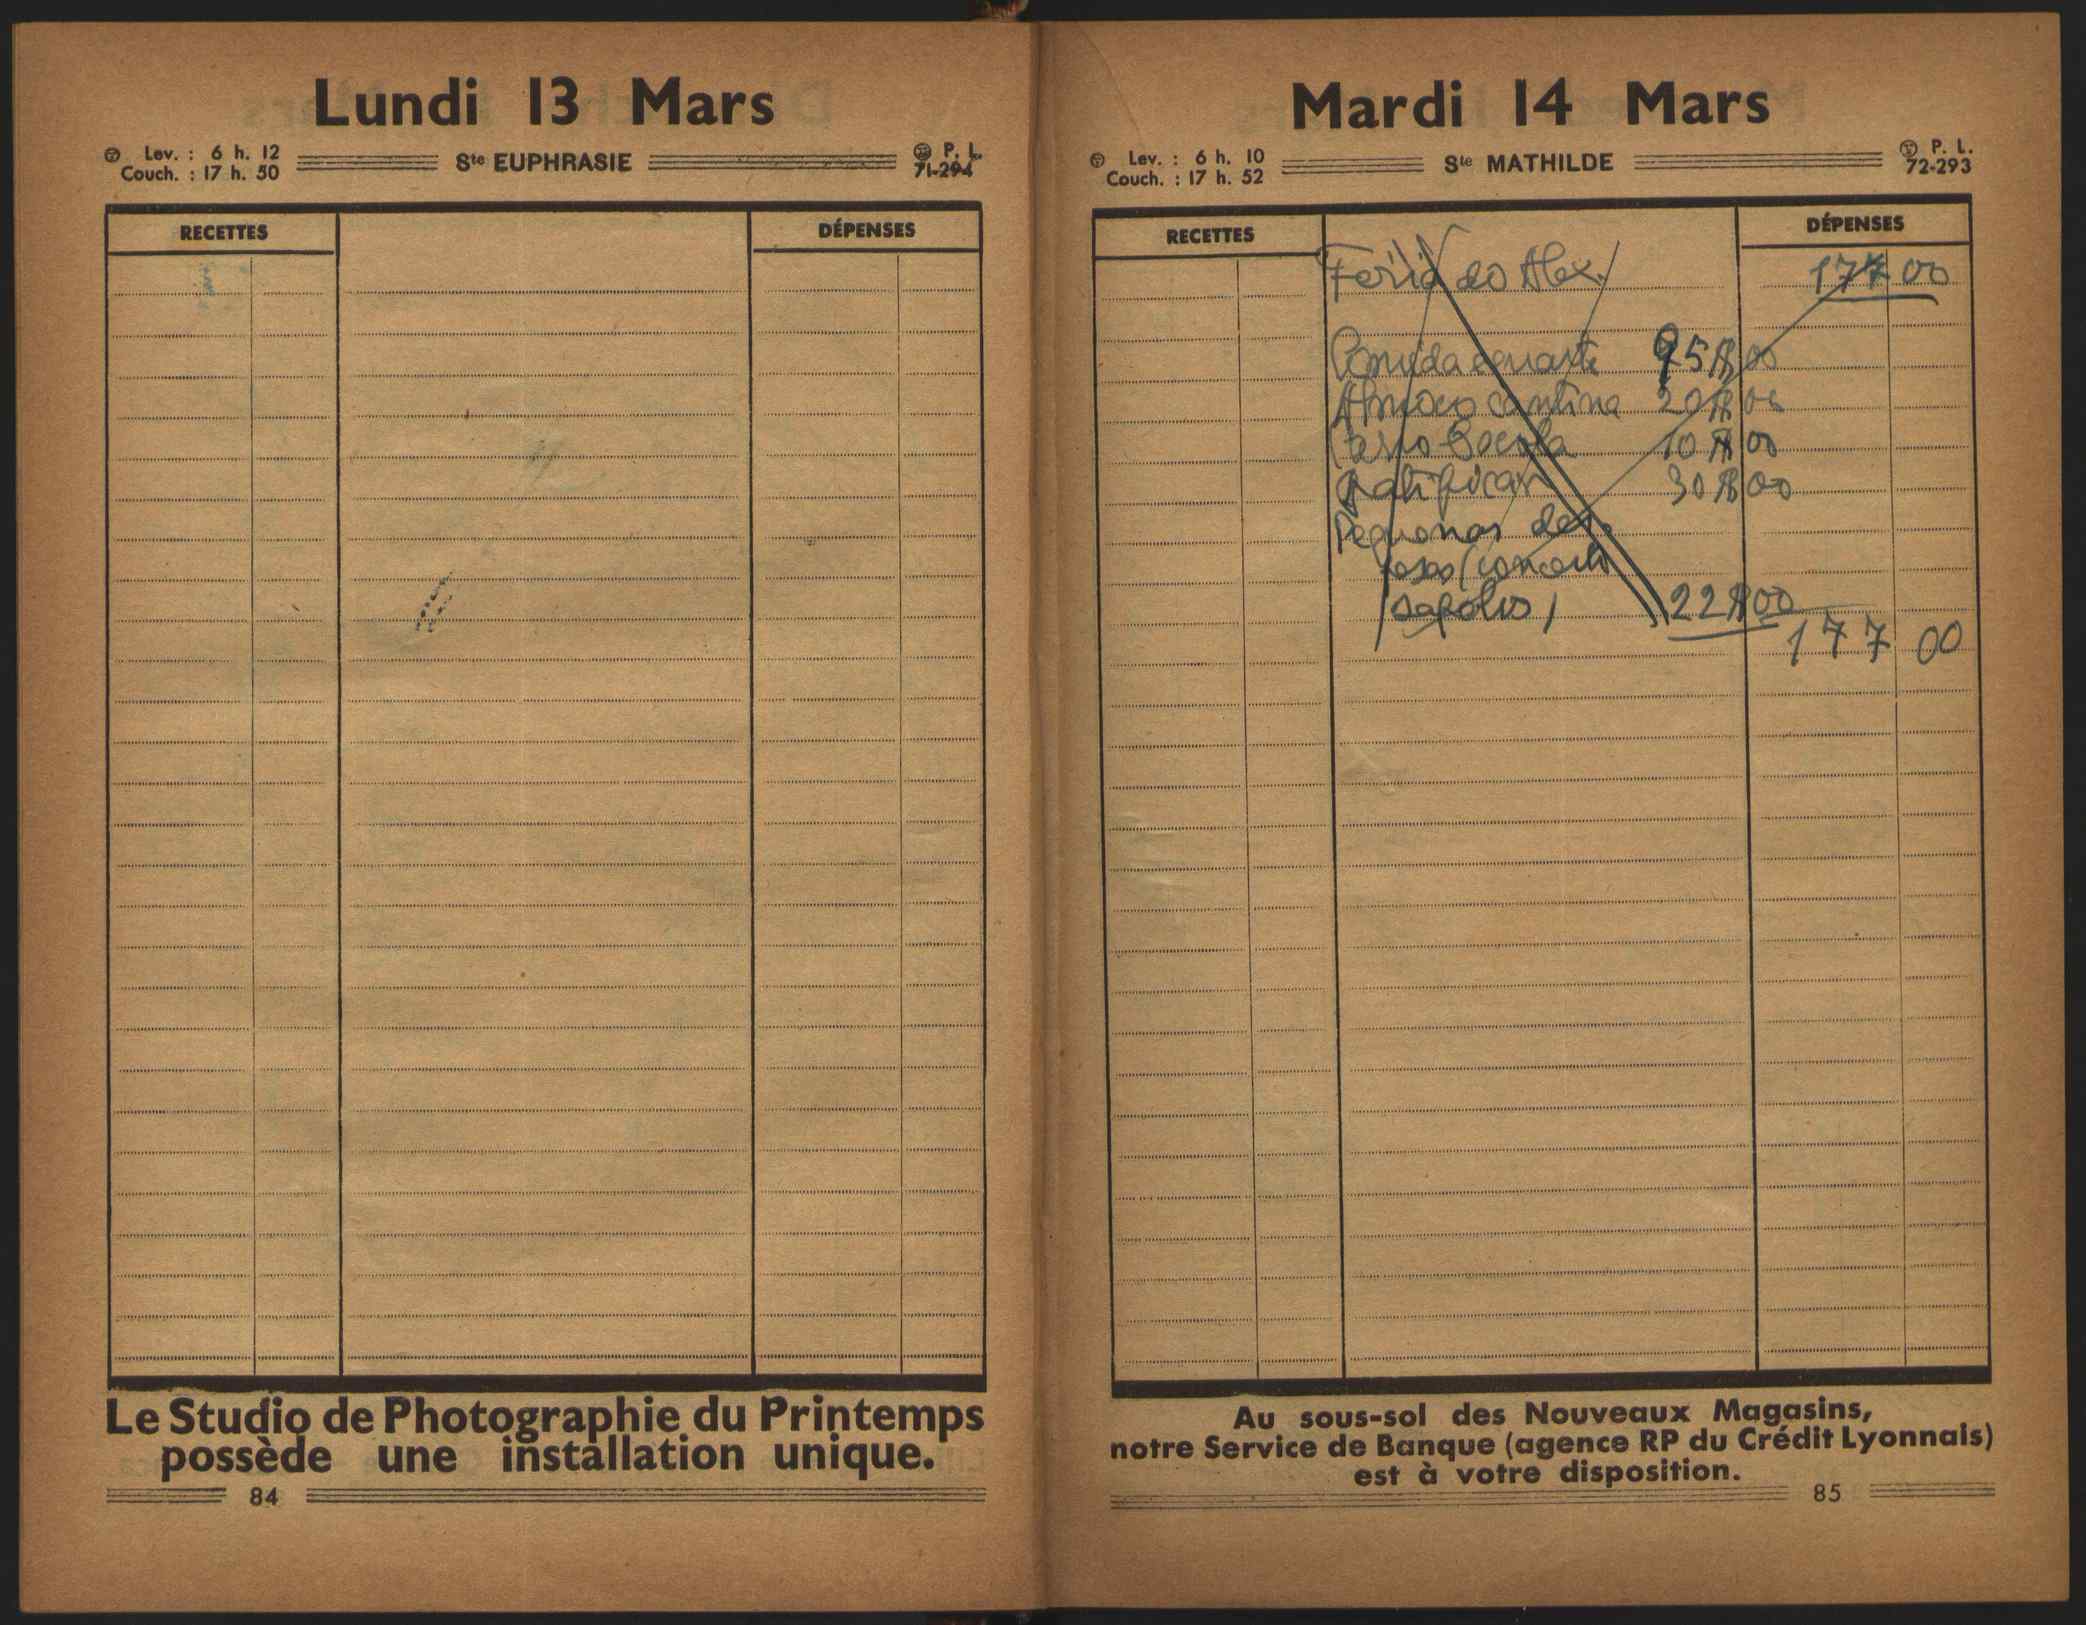 Lundi 13 Mars
Lev. : 6 h. 12
Couch. : 17 h. 50
Ste EUPHRASIE
P. L.
71-294
RECETTES
DÉPENSES
Le Studio de Photographie du Printemps
possède une installation unique.
84
Mardi 14 Mars
Lev. : 6 h. 10
Couch. : 17 h. 52
Ste MATHILDE
P. L.
72-293
RECETTES
DÉPENSES
Feria do Alex. 177 00
Comida e quarto 95$00
Almoço cantina 20$00
10$00
gratificar 30$00
Pequenas des-
pesas (
sapólio) 22$00
177 00
Au sous-sol des Nouveaux Magasins,
notre Service de Banque (agence RP du Crédit Lyonnais)
est à votre disposition.
85